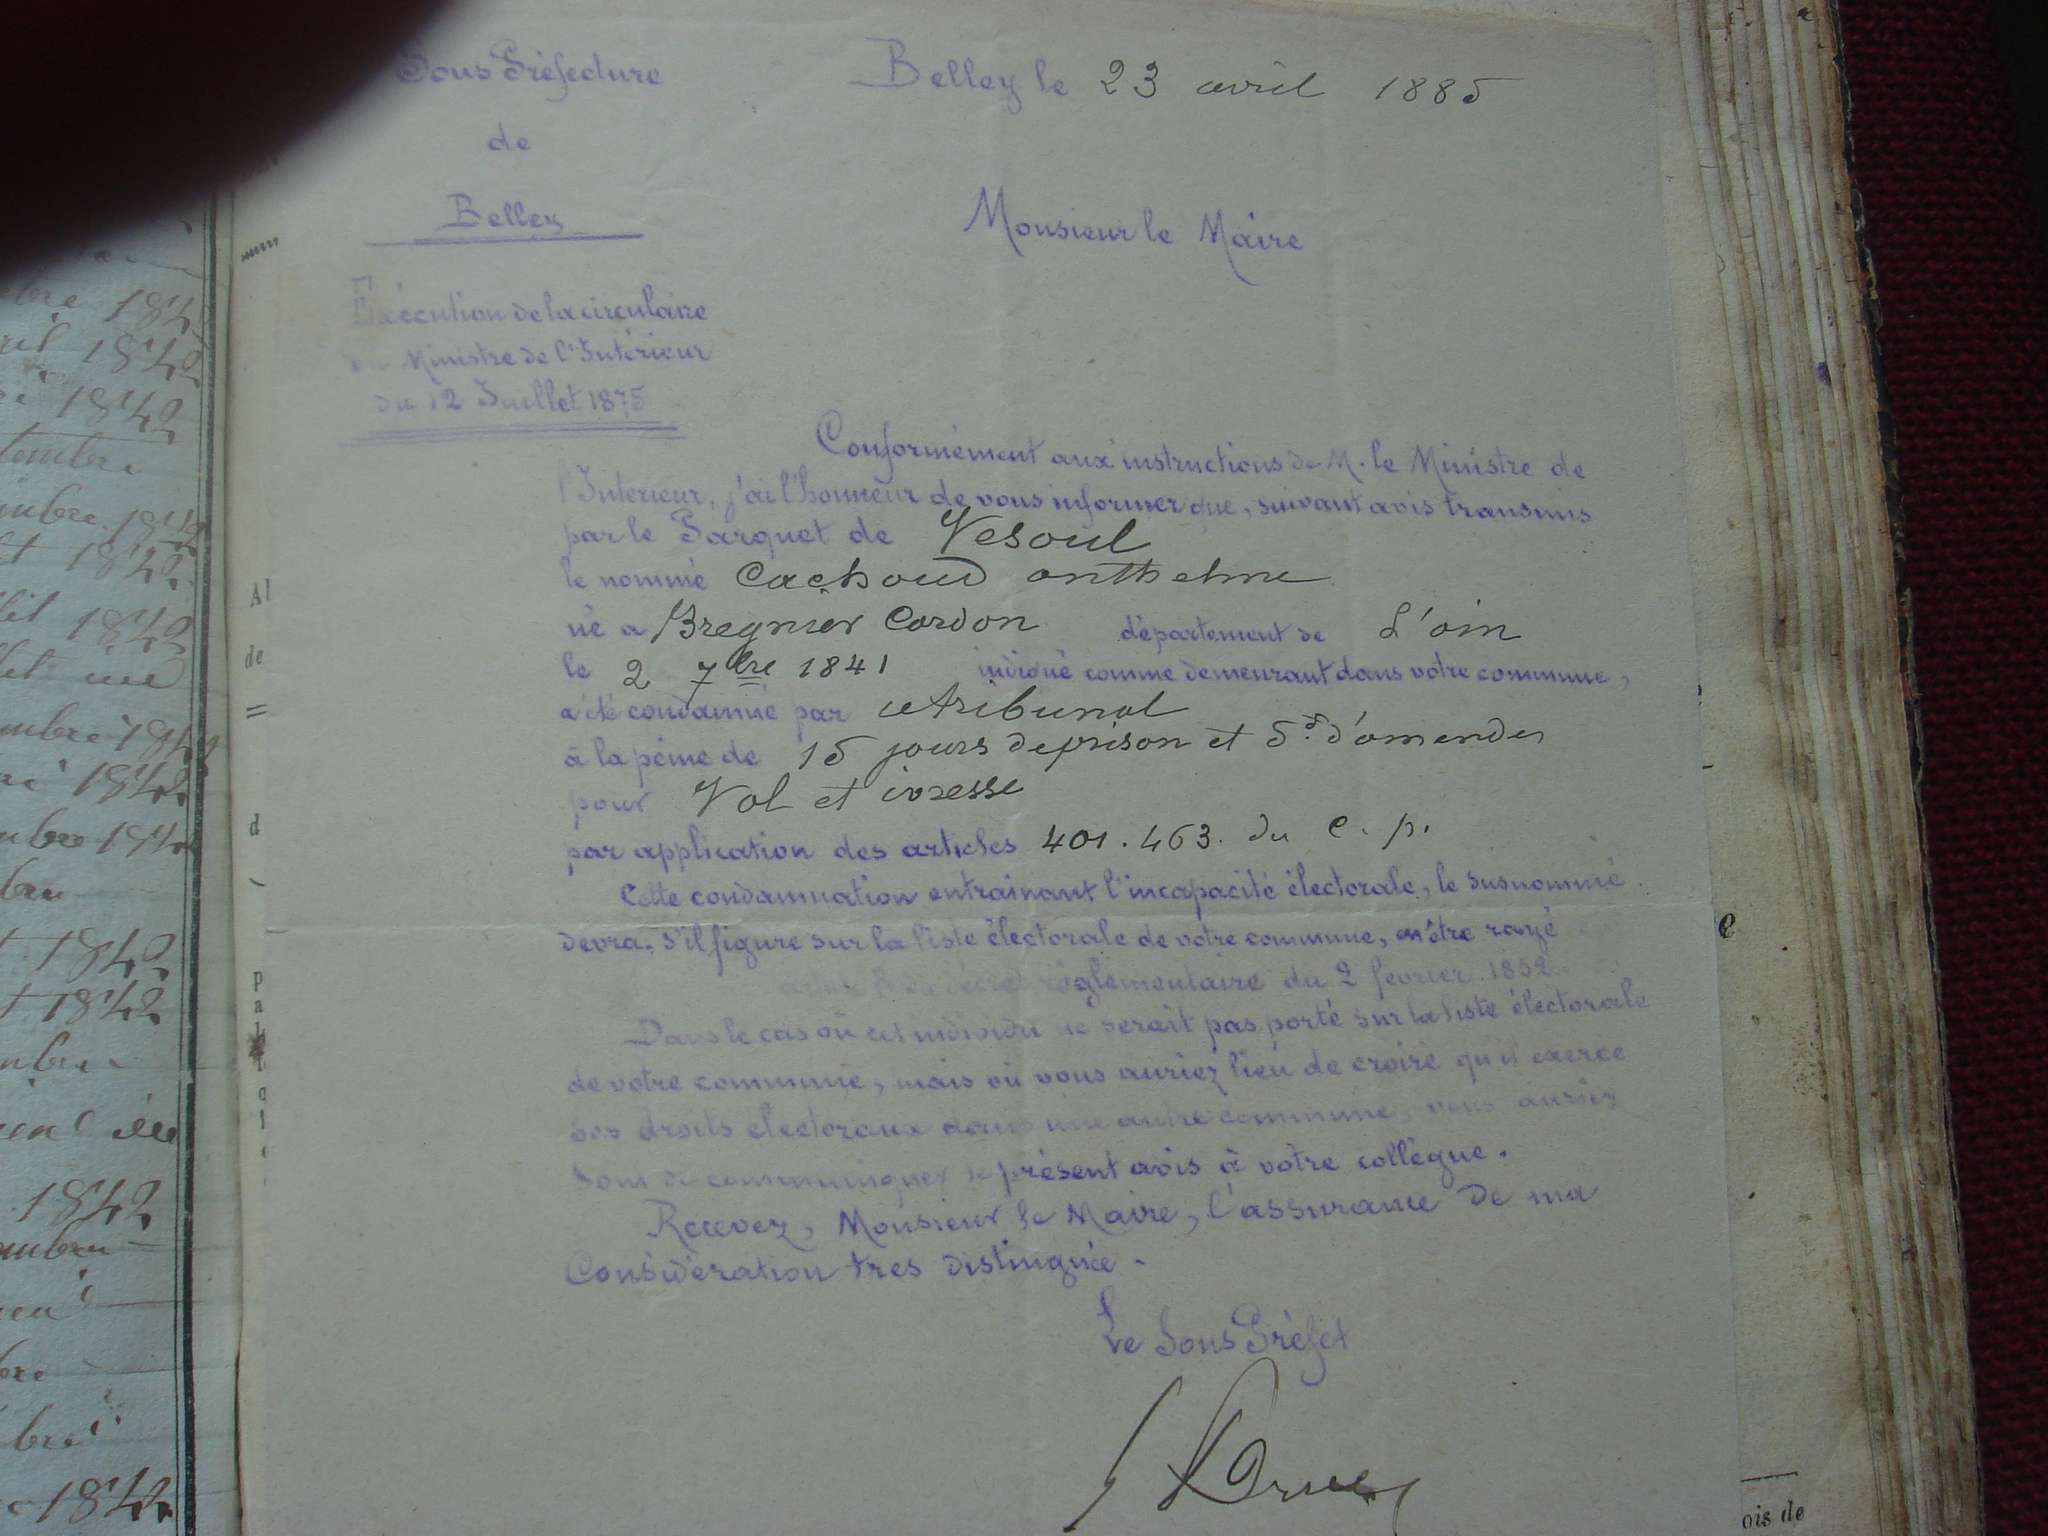 Sous Préfecture
de
Belley
Belley le 23 avril 1885
Monsieur le Maire
Exécution de la circulaire
du Ministre de l'Intérieur
du 12 Juillet 1875
Conformément aux instructions de M. le Ministre de
l'Intérieur, j'ai l'honneur de vous informer que, suivant avis transmis
par le Parquet de Vesoul
le nommé Cachoud anthelme
né a Bregnier Cordon département de L'ain
le 2 7bre 1841 indiqué comme demeurant dans votre commune,
a été condamné par le tribunal
à la peine de 15 jours de prison et 5f d'amendes
pour Vol et ivresse
par application des articles 401. 463. du c. p.
Cette condamnation entrainant l'incapacité électorale, le susnommé
devra, s'il figure sur la liste électorale de votre commune, en être rayé
réglementaire du 2 février 1852
Dans le cas où cet individu ne serait pas porté sur la liste électorale
de votre commune, mais où vous auriez lieu de croire qu'il exerce
ses droits électoraux dans une autre commune, vous auriez
soin de communiquer le présent avis à votre collègue.
Recevez, Monsieur le Maire, l'assurance de ma
Considération très distinguée.
Le Sous Préfet
bre 184
1842
1842
tembre
mbre 1842
1842
1842
mbre 1842
1842
mbre
1842
1842
mbre
1842
1842
Al
de
=
d
e
ois de